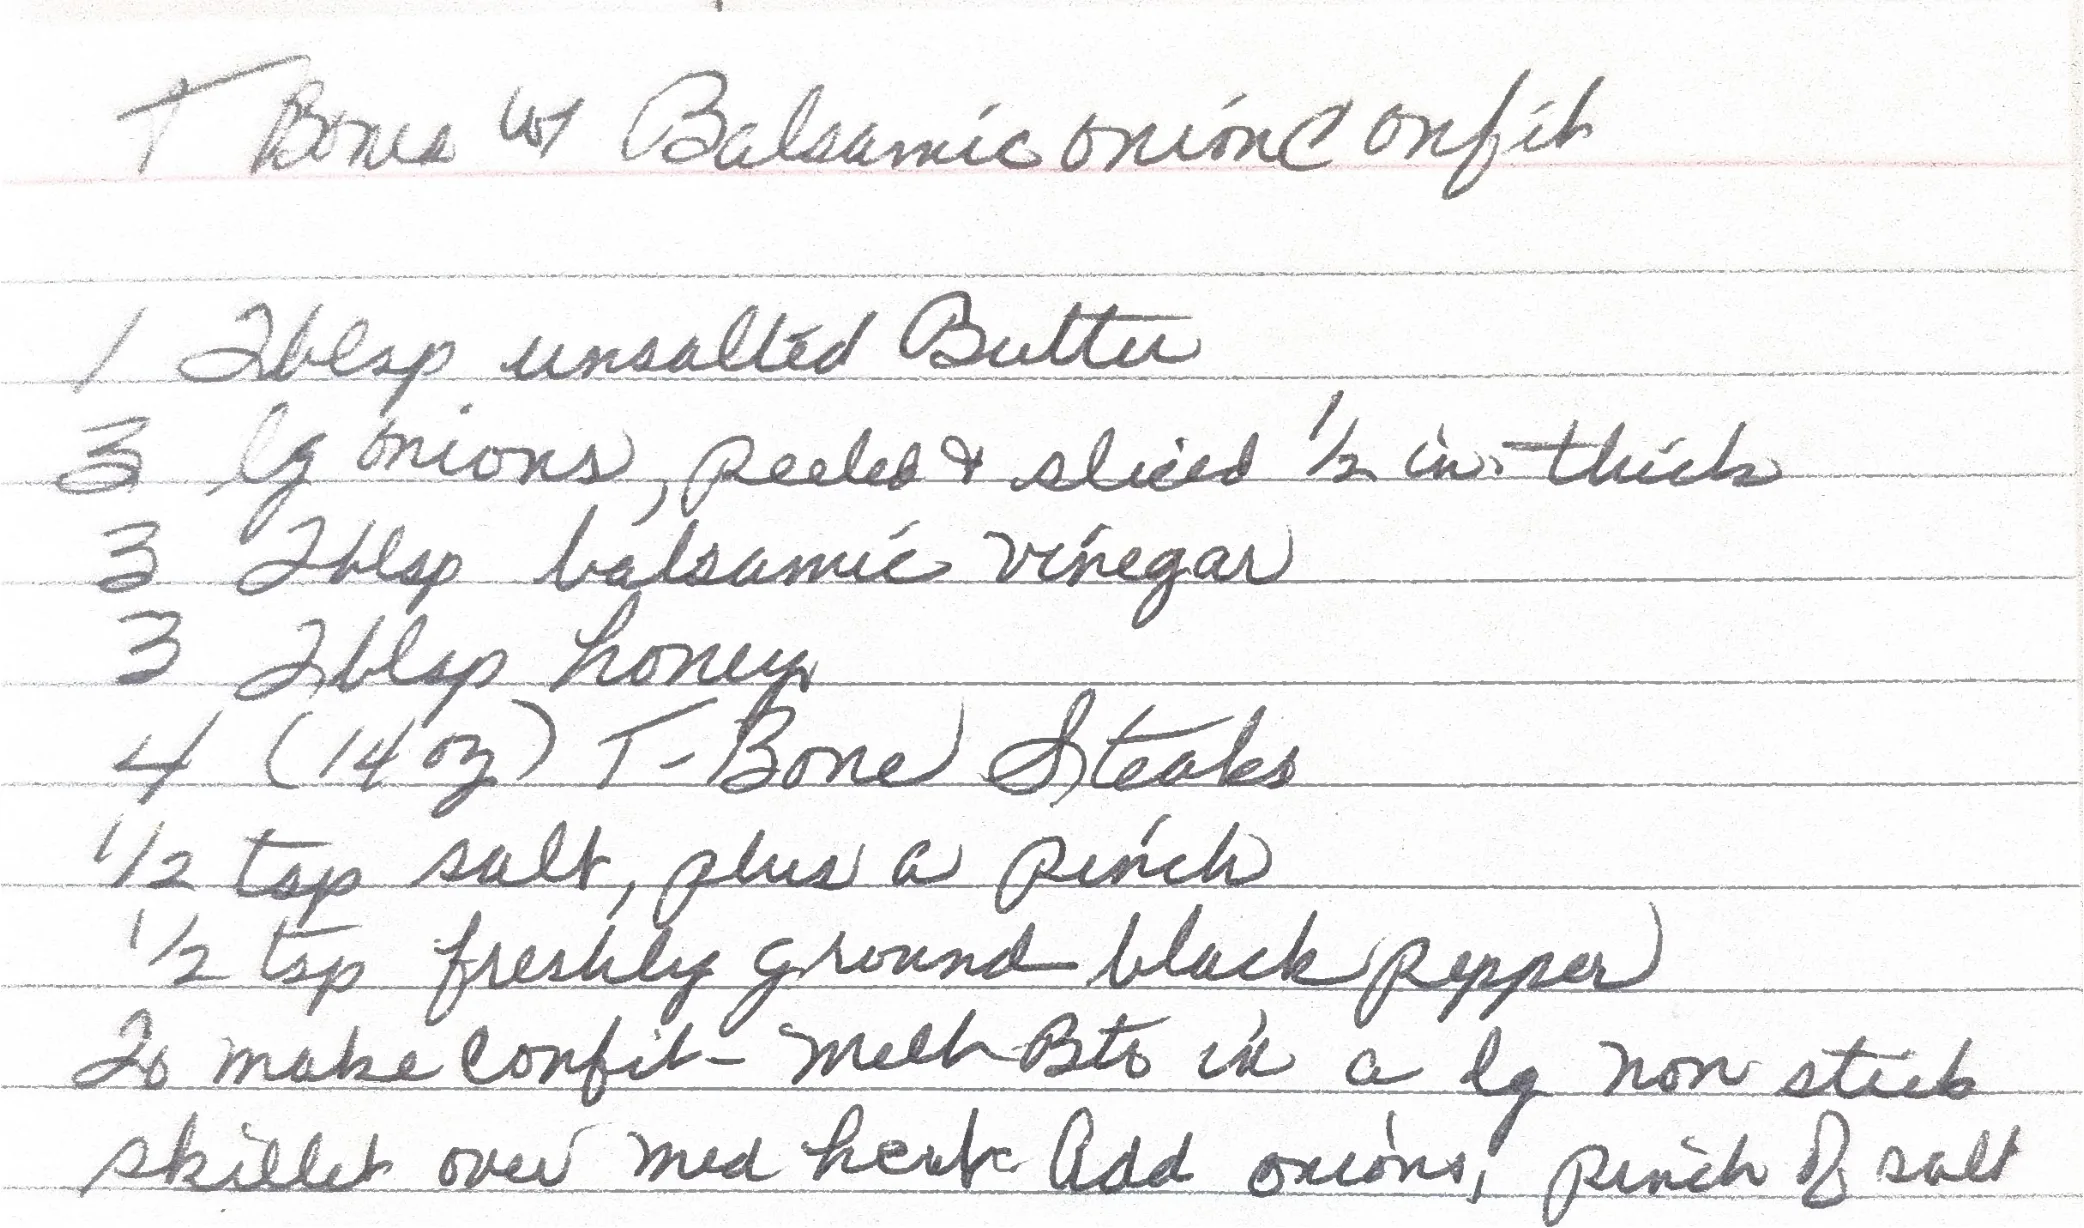 T Bones w/ Balsamic onion Confit
1 Tblsp unsalted Butter
3 lg onions, peeled & sliced 1/2 in. thick
3 Tblsp balsamic vinegar
3 Tblsp honey
4 (14 oz) T-Bone Steaks
1/2 tsp salt, plus a pinch
1/2 tsp freshly ground black pepper
To make Confit - Melt Btr in a lg non stick
skillet over med heat. Add onions, pinch of salt